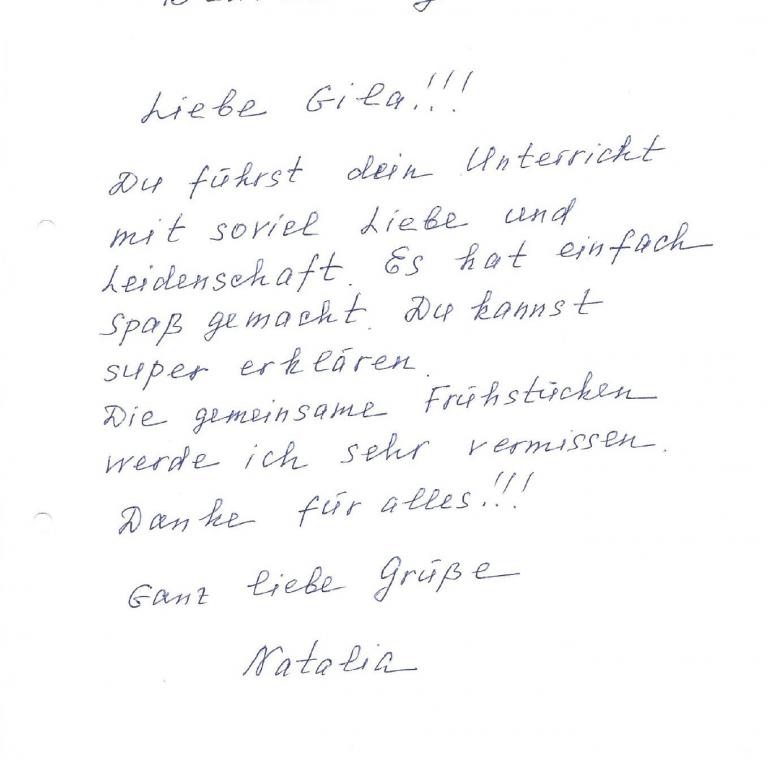 Liebe Gila!!!
Du führst dein Unterricht
mit soviel Liebe und
Leidenschaft. Es hat einfach
Spaß gemacht. Du kannst
super erklären.
Die gemeinsame Frühstücken
werde ich sehr vermissen.
Danke für alles!!!
Ganz liebe Grüße
Natalia